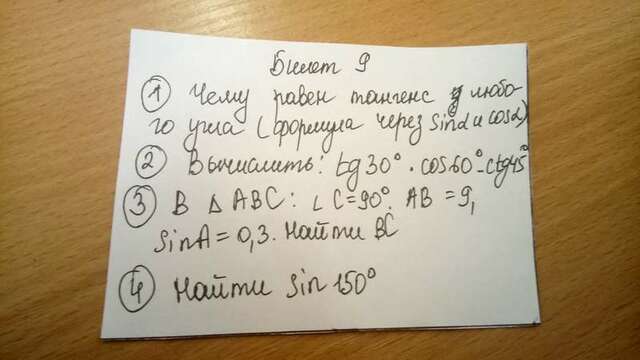 Билет 9
① Чему равен тангенс у любо
го угла (формула через sinα и cosα)
② Вычислить: tg30° · cos60° - ctg45°
③ В △ ABC: ∠ C = 90°. AB = 9,
sinA = 0,3. Найти BC
④ Найти sin 150°